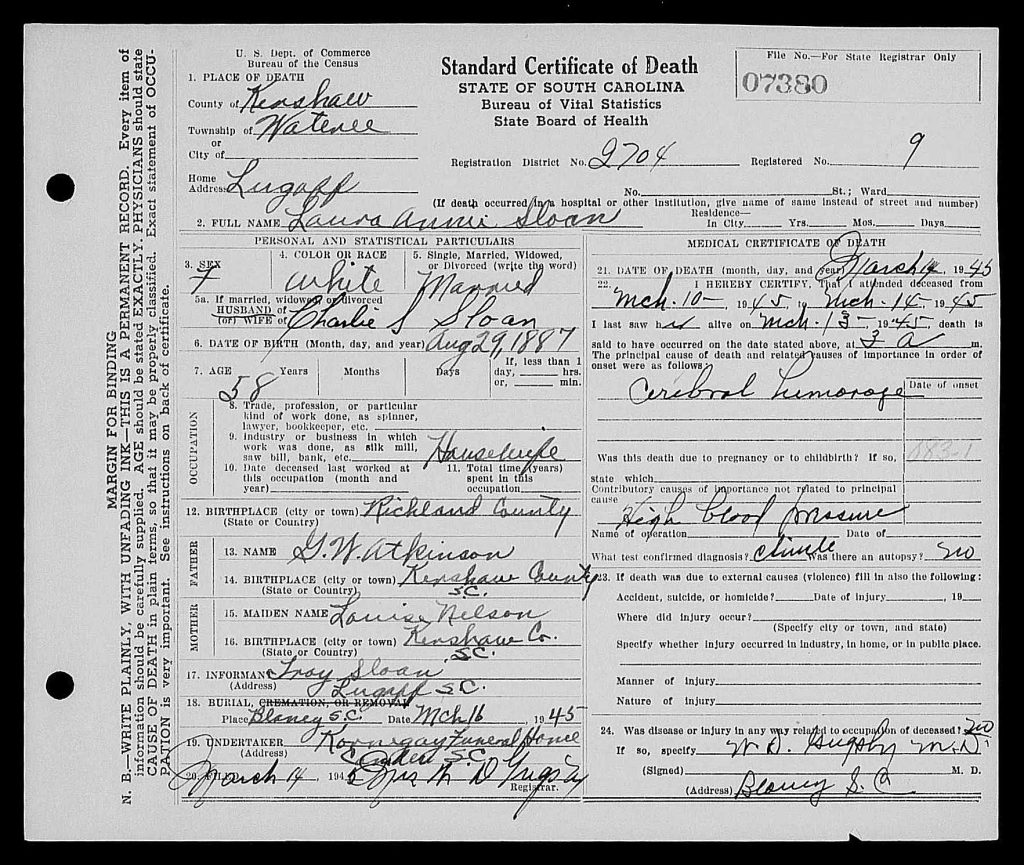 MARGIN FOR BINDING
N. B.—WRITE PLAINLY, WITH UNFADING INK—THIS IS A PERMANENT RECORD. Every item of
information should be carefully supplied. AGE should be stated EXACTLY. PHYSICIANS should state
CAUSE OF DEATH in plain terms, so that it may be properly classified. Exact statement of OCCU-
PATION is very important. See instructions on back of certificate.
U. S. Dept. of Commerce
Bureau of the Census
Standard Certificate of Death
STATE OF SOUTH CAROLINA
Bureau of Vital Statistics
State Board of Health
File No.—For State Registrar Only
07380
1. PLACE OF DEATH
County of Kershaw
Township of Wateree
or
City of
Registration District No. 2704 Registered No. 9
Home
Address Lugoff
No. St.; Ward
(If death occurred in a hospital or other institution, give name of same instead of street and number)
2. FULL NAME Laura Annie Sloan
Residence—
In City Yrs. Mos. Days
PERSONAL AND STATISTICAL PARTICULARS
3. SEX
F
4. COLOR OR RACE
White
5. Single, Married, Widowed,
or Divorced (write the word)
Married
5a. If married, widowed or divorced
HUSBAND of
(or) WIFE of Charlie S Sloan
6. DATE OF BIRTH (Month, day, and year) Aug 29, 1887
7. AGE Years Months Days
58
If, less than 1
day, hrs.
or, min.
OCCUPATION
8. Trade, profession, or particular
kind of work done, as spinner,
lawyer, bookkeeper, etc.
9. Industry or business in which
work was done, as silk mill,
saw bill, bank, etc. Housewife
10. Date deceased last worked at
this occupation (month and
year)
11. Total time (years)
spent in this
occupation
12. BIRTHPLACE (city or town) Richland County
(State or Country)
FATHER
13. NAME G. W. Atkinson
14. BIRTHPLACE (city or town) Kershaw County
(State or Country) S.C.
MOTHER
15. MAIDEN NAME Louise Nelson
16. BIRTHPLACE (city or town) Kershaw Co.
(State or Country) S.C.
17. INFORMANT Troy Sloan
(Address) Lugoff S.C.
18. BURIAL, CREMATION, OR REMOVAL
Place Blaney S.C. Date Mch 16, 1945
19. UNDERTAKER Kornegay Funeral Home
(Address) Camden S.C.
20. FILED March 14, 1945 Mrs W D Grigsby
Registrar.
MEDICAL CRETIFICATE OF DEATH
21. DATE OF DEATH (month, day, and year) March 14 1945
22. I HEREBY CERTIFY, That I attended deceased from
Mch. 10—, 1945, to Mch. 14—1945
I last saw her alive on Mch. 13—, 1945, death is
said to have occurred on the date stated above, at 3 A m.
The principal cause of death and related causes of importance in order of
onset were as follows:
Date of onset
Cerebral hemorage
Was this death due to pregnancy or to childbirth? If so,
083-1
state which
Contributory causes of importance not related to principal
cause
High blood pressure
Name of operation Date of
What test confirmed diagnosis? Was there an autopsy? no
23. If death was due to external causes (violence) fill in also the following:
Accident, suicide, or homicide? Date of injury, 19
Where did injury occur?
(Specify city or town, and state)
Specify whether injury occurred in industry, in home, or in public place.
Manner of injury
Nature of injury
24. Was disease or injury in any way related to occupation of deceased? no
If so, specify
(Signed) W. D. Grigsby M.D. M. D.
(Address) Blaney S. C